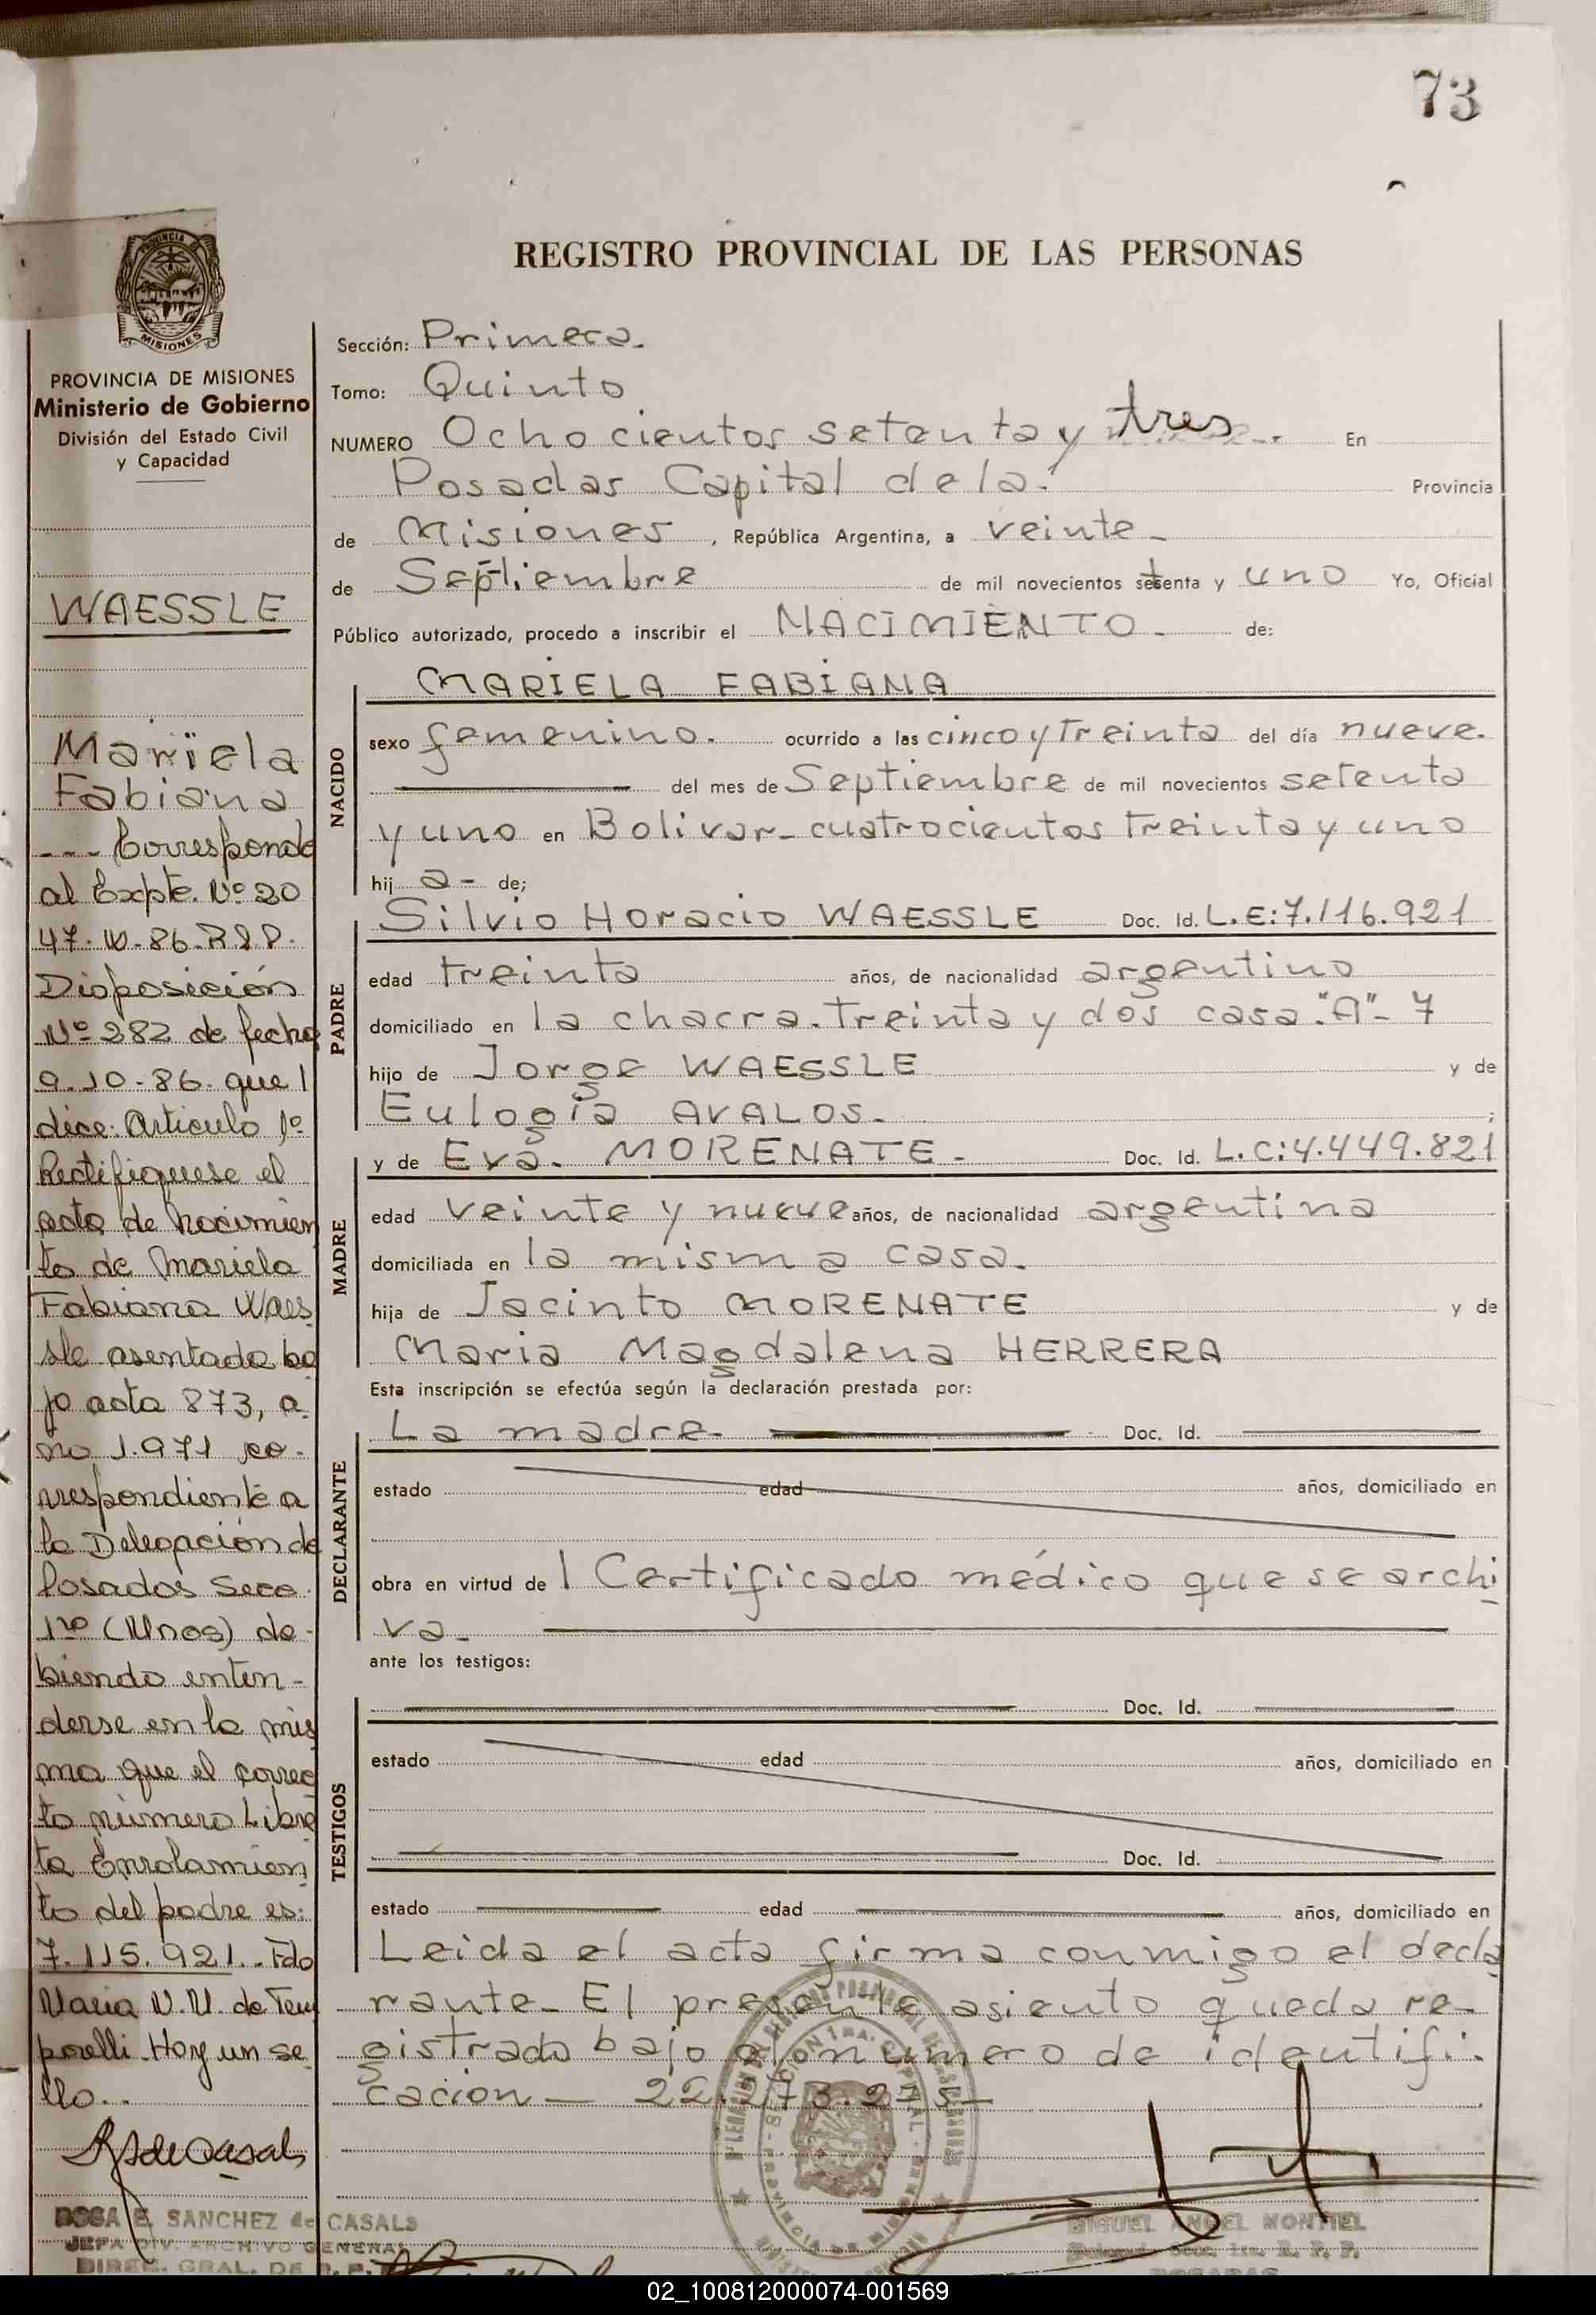 73
REGISTRO PROVINCIAL DE LAS PERSONAS
PROVINCIA DE
MISIONES
PROVINCIA DE MISIONES
Ministerio de Gobierno
División del Estado Civil
y Capacidad
WAESSLE
Mariela
Fabiana
---- Corresponde
al Expte. Nº 20
47.-W-86-R.P.P.
Disposición
Nº 282 de fecha
9-10-86. que
dice: Artículo 1º
Rectifiquese el
acta de Nacimien
to de Mariela
Fabiana Waes
sle asentada ba
jo acta 873, a
no 1.971 co-
rrespondiente a
la Delegación de
Posadas Secc.
1ra (Unos) de-
biendo enten-
derse en la mis
ma que el correc
to número Libre
ta Enrolamien
to del padre es:
7.115.921.. Fdo
Maria N.U. de Tem
porelli. Hay un se
llo..
ROSA E. SANCHEZ de CASALS
JEFA DIV. ARCHIVO GENERAL
DIREC. GRAL. DE R. P. P.
Sección: Primera.
Tomo: Quinto
NUMERO Ochocientos setenta y tres.-. En
Posadas Capital de la. Provincia
de Misiones , República Argentina, a veinte-
de Septiembre de mil novecientos setenta y uno Yo, Oficial
Público autorizado, procedo a inscribir el NACIMIENTO- de:
NACIDO
MARIELA FABIANA
sexo femenino. ocurrido a las cinco y treinta del día nueve.
del mes de Septiembre de mil novecientos setenta
y uno en Bolivar- cuatrocientos treinta y uno
hij a- de;
PADRE
Silvio Horacio WAESSLE Doc. Id. L.E:7.116.921
edad treinta años, de nacionalidad argentino
domiciliado en la chacra.treinta y dos casa."A"- 7
hijo de Jorge WAESSLE y de
Eulogia AVALOS. ;
MADRE
y de Eva. MORENATE- Doc. Id. L.C:4.449.821
edad veinte y nueve años, de nacionalidad argentina
domiciliada en la misma casa.
hija de Jacinto MORENATE y de
Maria Magdalena HERRERA
Esta inscripción se efectúa según la declaración prestada por:
DECLARANTE
La madre. Doc. Id.
estado edad años, domiciliado en
obra en virtud de 1 Certificado médico que se archi
va-
ante los testigos:
TESTIGOS
Doc. Id.
estado edad años, domiciliado en
Doc. Id.
estado edad años, domiciliado en
Leida el acta firma conmigo el decla
rante- El presente asiento queda re-
gistrado bajo el número de identifi-
cacion- 22.273.275-
MIGUEL ANGEL MONTIEL
POSADAS
02_100812000074-001569